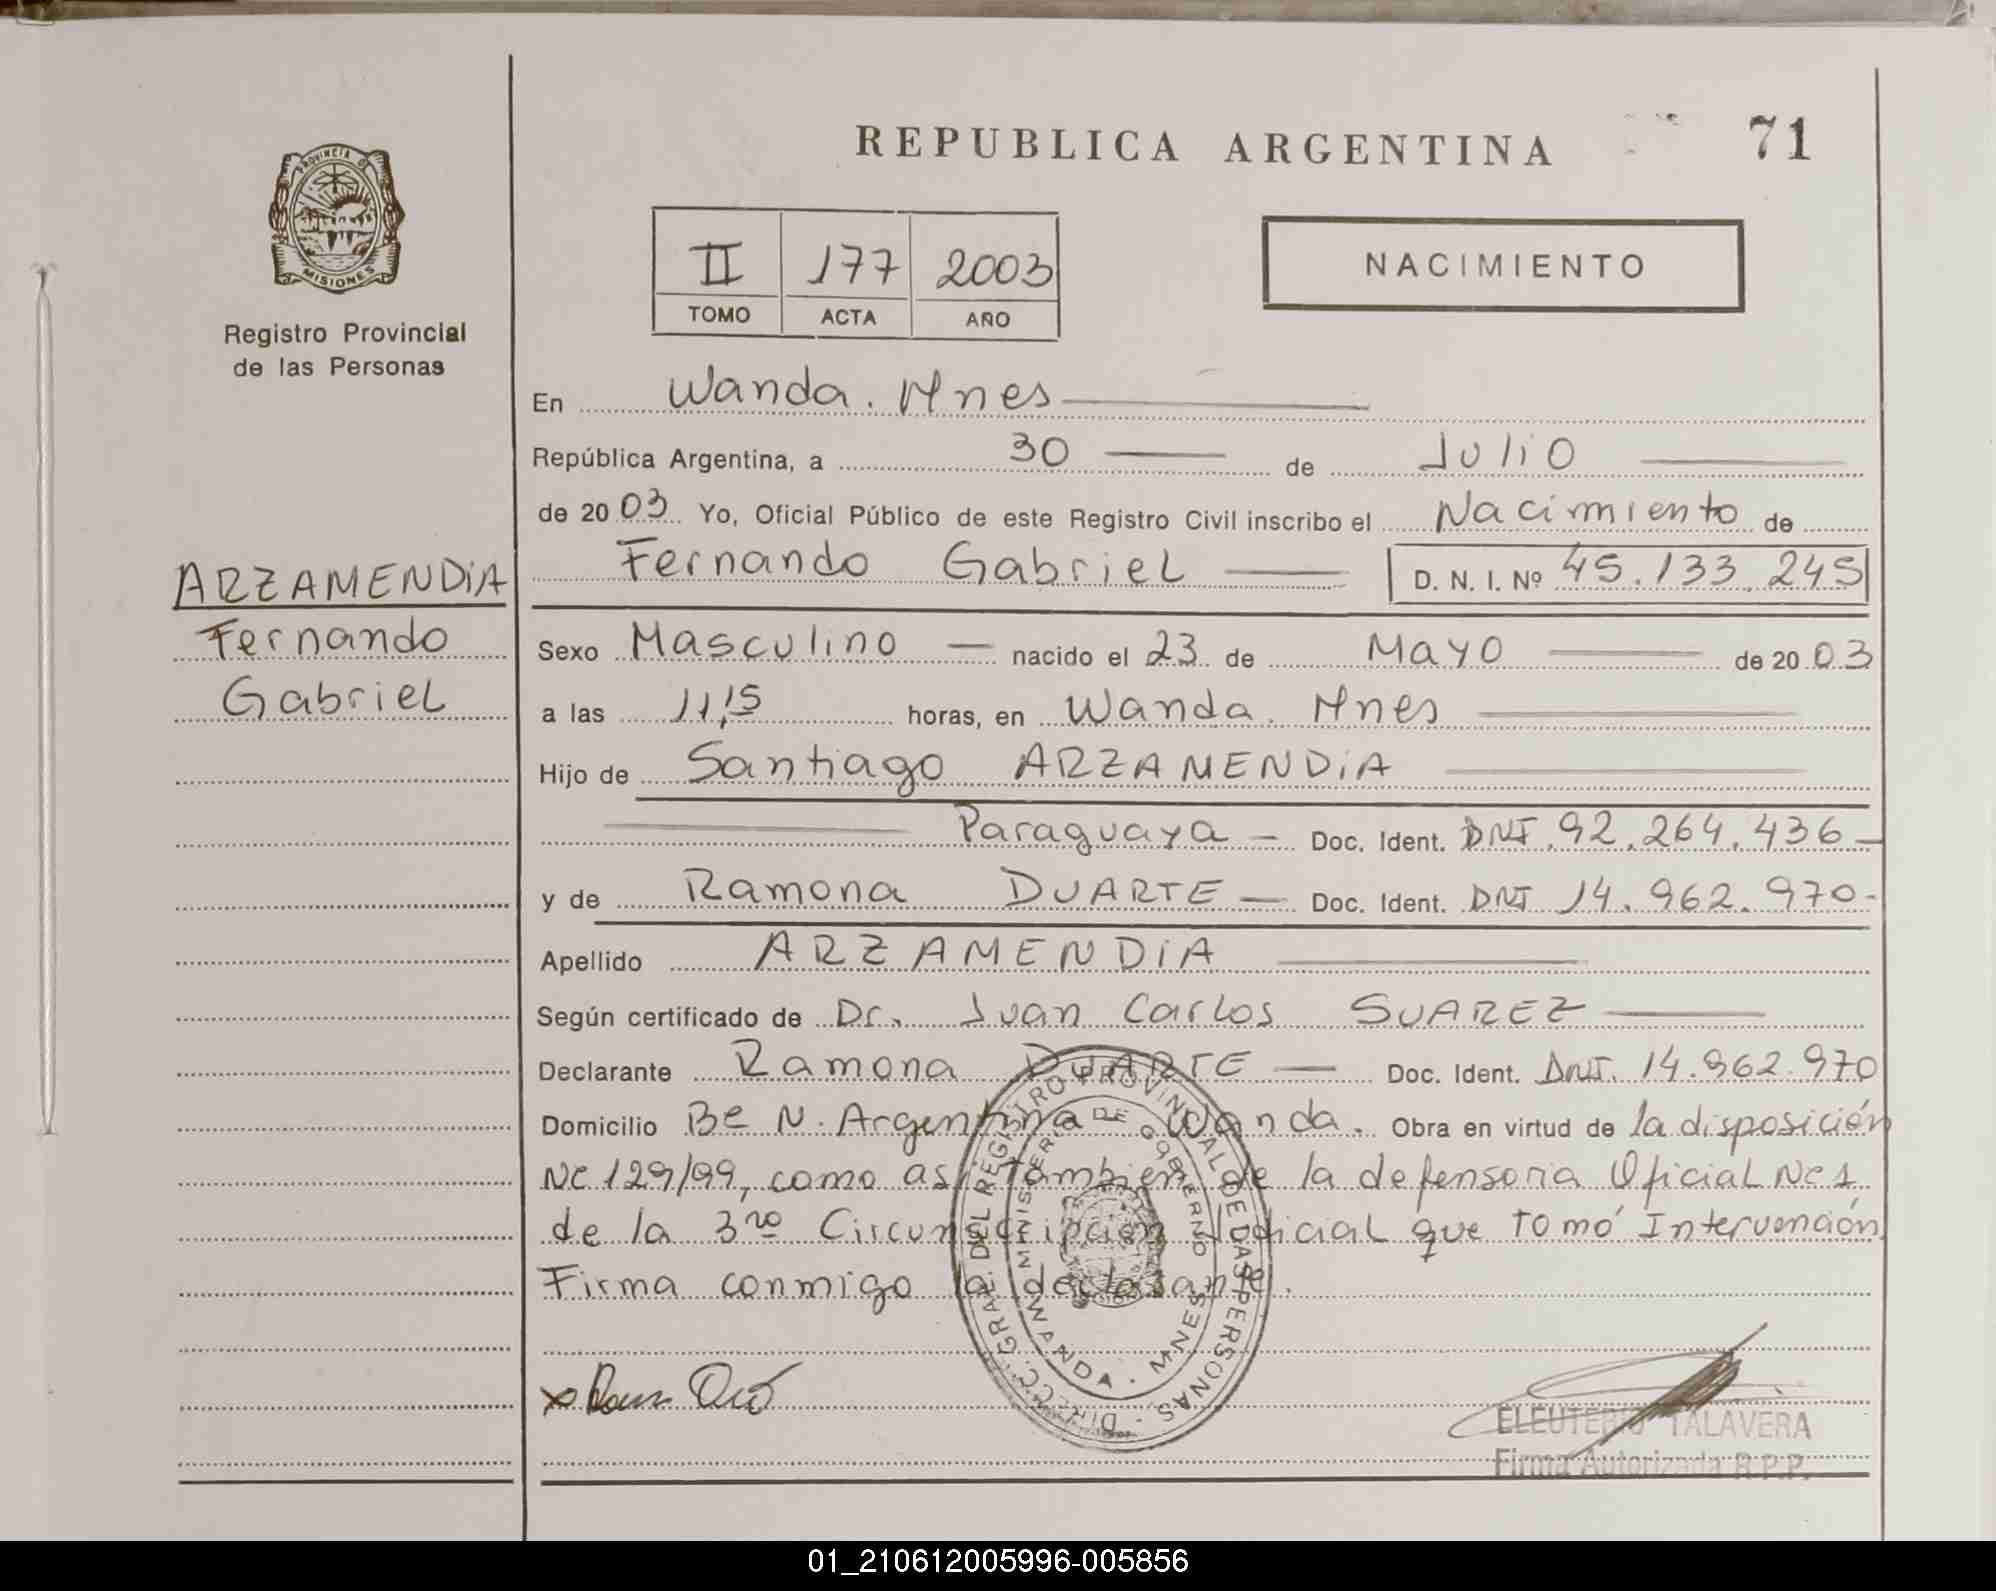 PROVINCIA DE
MISIONES
Registro Provincial
de las Personas
ARZAMENDiA
Fernando
Gabriel
REPUBLICA ARGENTINA
71
II 177 2003
TOMO ACTA AÑO
NACIMIENTO
En Wanda. Mnes
República Argentina, a 30 de Julio
de 2003 Yo, Oficial Público de este Registro Civil inscribo el Nacimiento de
Fernando Gabriel D. N. I. Nº 45.133.245
Sexo Masculino nacido el 23 de Mayo de 2003
a las 11,15 horas, en Wanda. Mnes
Hijo de Santiago ARZAMENDiA
Paraguaya Doc. Ident. DNI. 92.264.436
y de Ramona DUARTE Doc. Ident. DNI 14.962.970
Apellido ARZAMENDiA
Según certificado de Dr. Juan Carlos SUAREZ
Declarante Ramona DUARTE Doc. Ident. DNI. 14.962.970
Domicilio Bº N. Argentina Wanda. Obra en virtud de la disposición
Nº 129/99, como asi tambien de la defensoria Oficial Nº 1
de la 3ra Circunscripción Judicial que tomó Intervención
Firma conmigo la declarante.
DIRECC. GRAL. DEL REGISTRO PROVINCIAL DE LAS PERSONAS
MINISTERIO DE GOBIERNO
WANDA - MNES
ELEUTERIO TALAVERA
Firma Autorizada R.P.P.
01_210612005996-005856